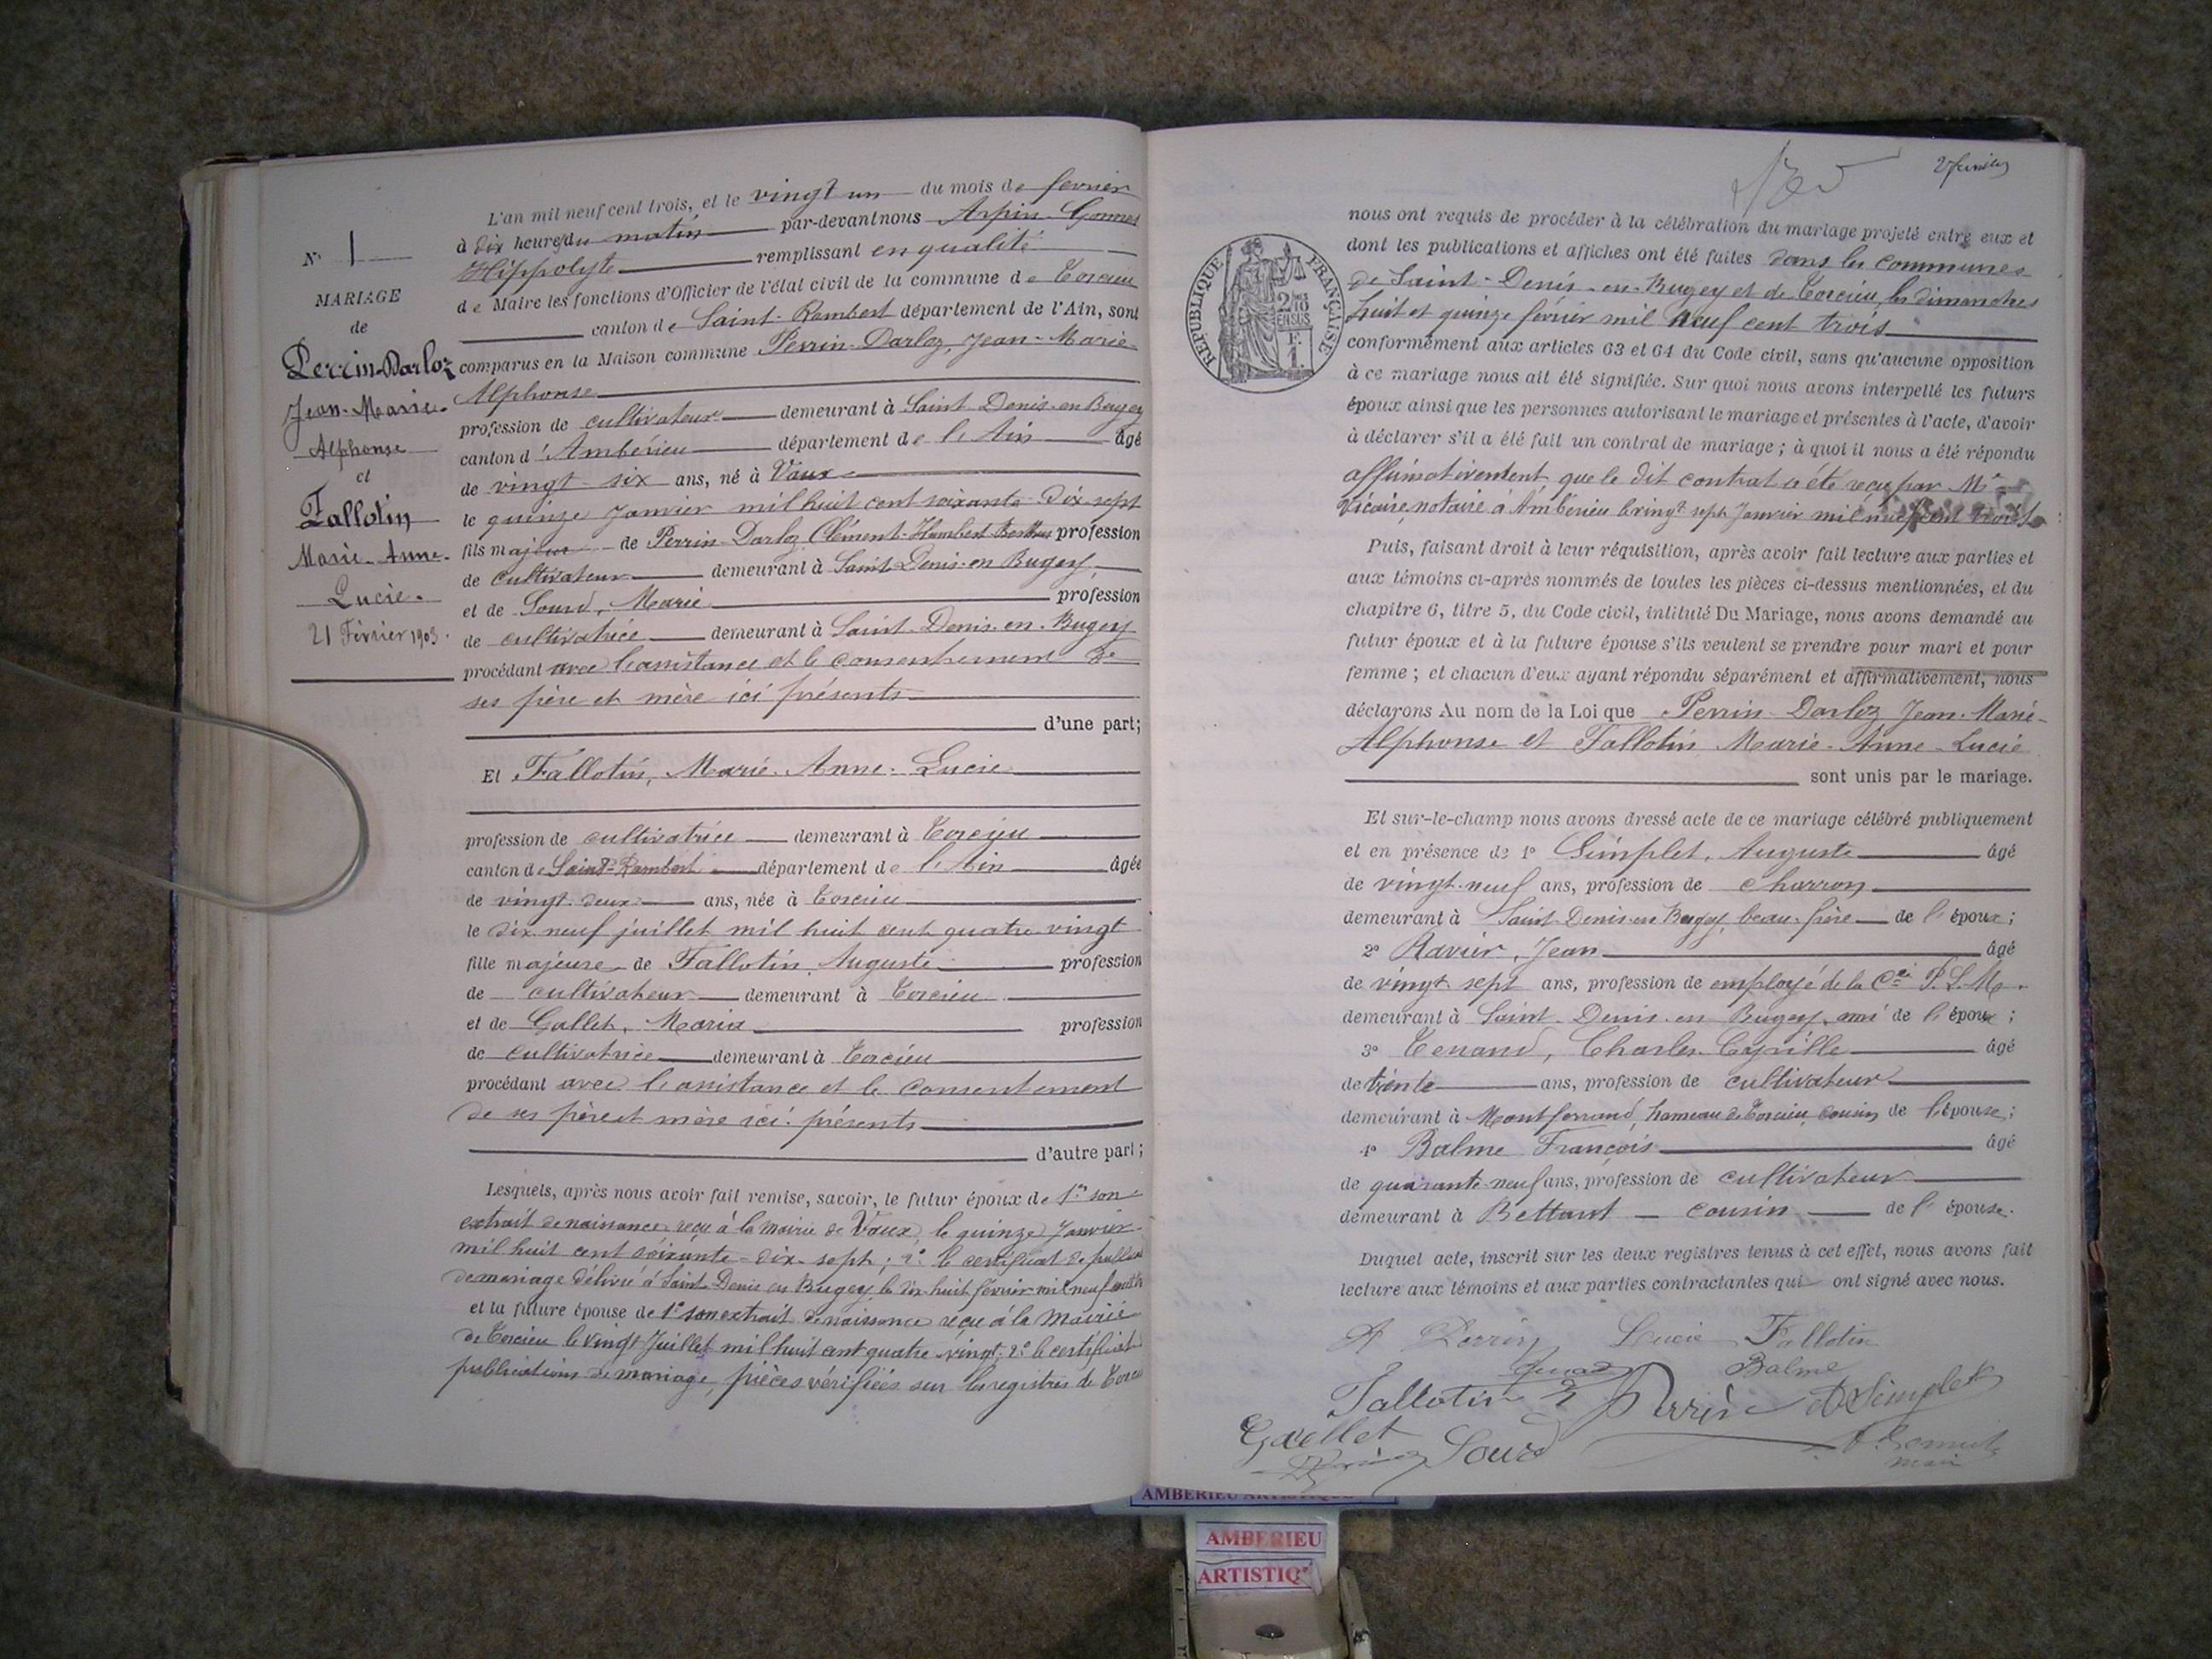 N° 1
MARIAGE
de
Perrin-Darloz
Jean-Marie-
Alphonse
et
Fallotin
Marie-Anne-
Lucie.
21 Février 1903.
L'an mil neuf cent trois, et le vingt un du mois de février
à dix heures du matin par-devant nous Arpin-Gonnet
Hippolyte remplissant en qualité
de Maire les fonctions d'Officier de l'état civil de la commune de Torcieu
canton de Saint-Rambert département de l'Ain, sont
comparus en la Maison commune Perrin-Darloz, Jean-Marie-
Alphonse
profession de cultivateur demeurant à Saint-Denis-en-Bugey
canton d'Ambérieu département de l'Ain âgé
de vingt-six ans, né à Vaux
le quinze Janvier mil huit cent soixante-dix-sept
fils majeur de Perrin-Darloz Clément-Humbert profession
de cultivateur demeurant à Saint-Denis-en Bugey
et de Sourd, Marie profession
de cultivatrice demeurant à Saint-Denis-en-Bugey
procédant avec l'assistance et le consentement de
ses père et mère ici présents
d'une part;
Et Fallotin, Marie-Anne-Lucie
profession de cultivatrice demeurant à Torcieu
canton de Saint-Rambert département de l'Ain âgée
de vingt-deux ans, née à Torcieu
le dix-neuf juillet mil huit cent quatre-vingt
fille majeure de Fallotin, Auguste profession
de cultivateur demeurant à Torcieu
et de Gallet, Maria profession
de cultivatrice demeurant à Torcieu
procédant avec l'assistance et le consentement
de ses père et mère ici présents
d'autre part;
Lesquels, après nous avoir fait remise, savoir, le futur époux de 1° son
extrait de naissance reçu à la mairie de Vaux, le quinze Janvier
mil huit cent soixante-dix-sept; 2° le certificat de
de mariage délivré à Saint-Denis en Bugey le dix huit février mil neuf
et la future épouse de 1° son extrait de naissance reçu à la Mairie
de Torcieu le vingt Juillet mil huit cent quatre-vingt; 2° le certificat
publications de mariage, pièces vérifiées sur les registres de Torcieu
2 feuillets
RÉPUBLIQUE FRANÇAISE
2/10 EN SUS
F.
1.
nous ont requis de procéder à la célébration du mariage projeté entre eux et
dont les publications et affiches ont été faites dans les communes
de Saint-Denis-en-Bugey et de Torcieu, les dimanches
huit et quinze février mil neuf cent trois
conformément aux articles 63 et 64 du Code civil, sans qu'aucune opposition
à ce mariage nous ait été signifiée. Sur quoi nous avons interpellé les futurs
époux ainsi que les personnes autorisant le mariage et présentes à l'acte, d'avoir
à déclarer s'il a été fait un contrat de mariage; à quoi il nous a été répondu
affirmativement que le dit contrat a été reçu par Me
Vicaire, notaire à Ambérieu le vingt sept Janvier mil neuf cent trois
Puis, faisant droit à leur réquisition, après avoir fait lecture aux parties et
aux témoins ci-après nommés de toutes les pièces ci-dessus mentionnées, et du
chapitre 6, titre 5, du Code civil, intitulé Du Mariage, nous avons demandé au
futur époux et à la future épouse s'ils veulent se prendre pour mari et pour
femme; et chacun d'eux ayant répondu séparément et affirmativement, nous
déclarons Au nom de la Loi que Perrin-Darloz Jean-Marie-
Alphonse et Fallotin Marie-Anne-Lucie
sont unis par le mariage.
Et sur-le-champ nous avons dressé acte de ce mariage célébré publiquement
et en présence de 1° Simplet, Auguste âgé
de vingt-neuf ans, profession de charron
demeurant à Saint-Denis-en Bugey, beau-frère de l'époux;
2° Ravier, Jean âgé
de vingt sept ans, profession de employé de la Cie P.L.M.
demeurant à Saint-Denis-en Bugey, ami de l'époux;
3° Tenand, Charles-Cyrille âgé
de trente ans, profession de cultivateur
demeurant à Montferrand, hameau de Torcieu, cousin de l'épouse;
4° Balme François âgé
de quarante-neuf ans, profession de cultivateur
demeurant à Bettant - cousin de l'épouse.
Duquel acte, inscrit sur les deux registres tenus à cet effet, nous avons fait
lecture aux témoins et aux parties contractantes qui ont signé avec nous.
A Perrin Lucie Fallotin
Balme
Fallotin Perrin A Simplet
Gallet Sourd
AMBERIEU ARTISTIQUE
AMBERIEU
ARTISTIQ